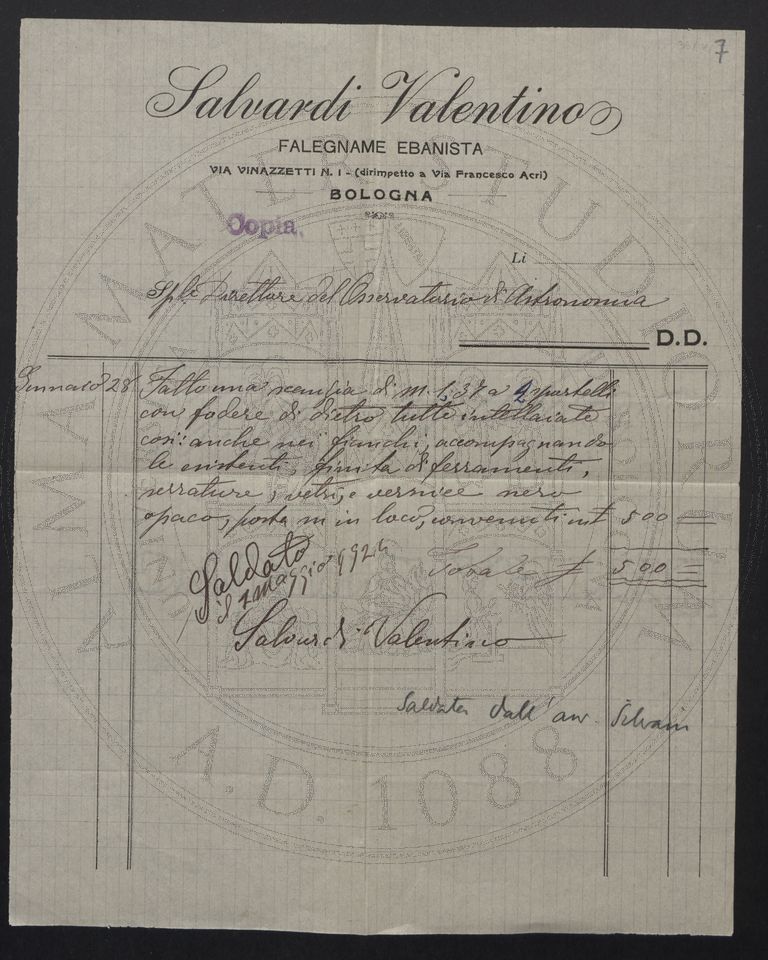 7
Salvardi Valentino
FALEGNAME EBANISTA
VIA VINAZZETTI N. 1 - (dirimpetto a Via Francesco Acri)
BOLOGNA
Copia
Li
Sple Direttore del Osservatorio di Astronomia
D.D.
Gennaio 28 Fatto una scansia di m. 1,37 a 2 sportelli
con fodere di dietro tutte intellaiate
così anche nei fianchi, accompagnando
le esistenti, finita di ferramenti,
serrature, vetri, e vernice nero
opaco, posta in loco, convenuti 500
Totale £ 500
Saldato
il 7 maggio 1924
Salvardi Valentino
Saldata dall'avv. Silvani
ALMA MATER STUDIORUM
A.D. 1088